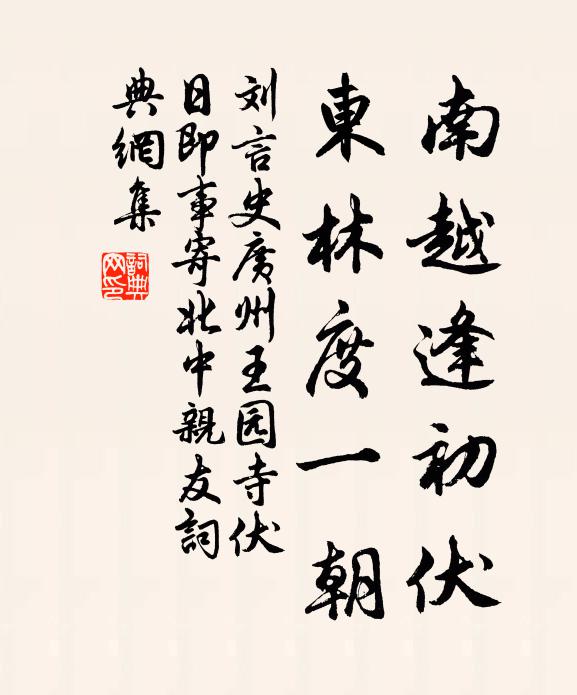 南越逢初伏
東林度一朝
刘言史廣州王园寺伏
日即事寄北中親友詞
典網集
詞典
网印